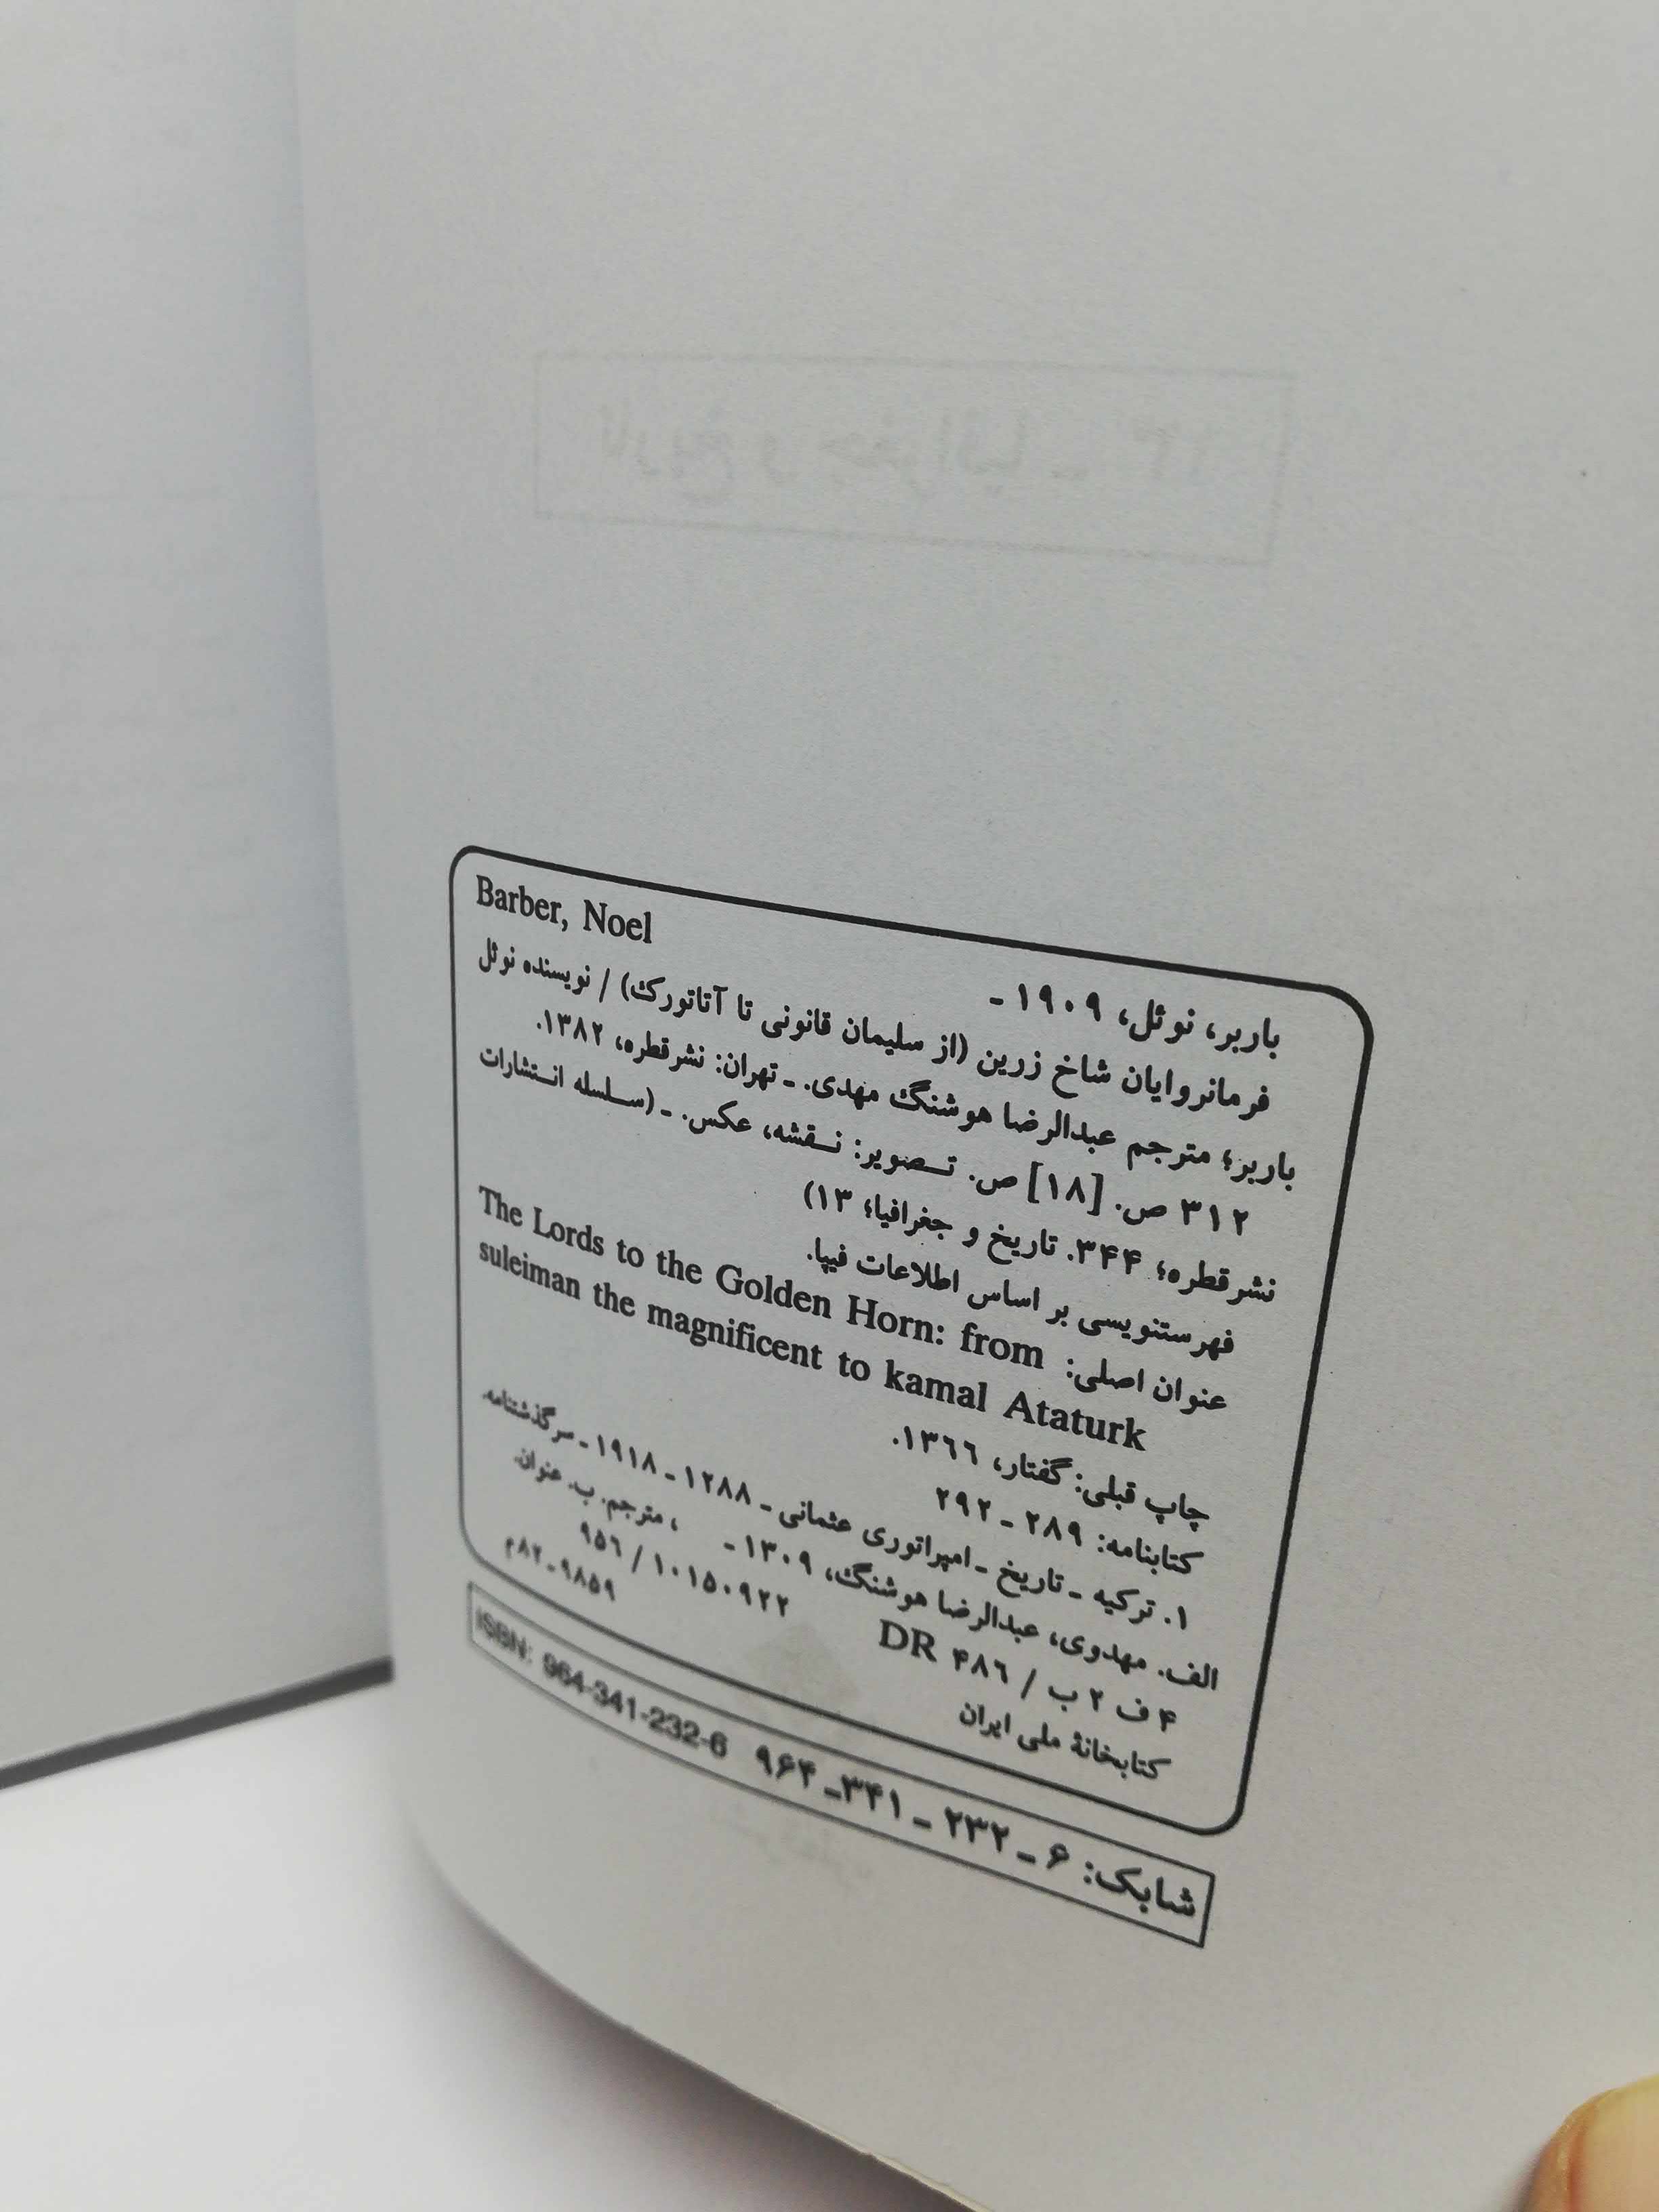 باربر، نوئل، ۱۹۰۹ - Barber, Noel
فرمانروایان شاخ زرین (از سلیمان قانونی تا آتاتورک) / نویسنده نوئل
باربر؛ مترجم عبدالرضا هوشنگ مهدی. - تهران: نشر قطره، ۱۳۸۲.
۳۱۲ ص. [۱۸] ص. تصویر: نقشه، عکس. - (سلسله انتشارات
نشر قطره؛ ۳۴۴. تاریخ و جغرافیا؛ ۱۳)
فهرستنویسی بر اساس اطلاعات فیپا.
عنوان اصلی: The Lords to the Golden Horn: from
suleiman the magnificent to kamal Ataturk
چاپ قبلی: گفتار، ۱۳۶۶.
کتابنامه: ۲۸۹ - ۲۹۲
۱. ترکیه - تاریخ - امپراتوری عثمانی - ۱۲۸۸ - ۱۹۱۸ - سرگذشتنامه.
الف. مهدوی، عبدالرضا هوشنگ، ۱۳۰۹ - ، مترجم. ب. عنوان.
۴ ف ۲ ب / ۴۸۶ DR ۹۵۶ / ۱۰۱۵۰۹۲۲
کتابخانهٔ ملی ایران ۹۸۵۹ - ۸۲م
شابک: ۶ - ۲۳۲ - ۳۴۱ - ۹۶۴ ISBN: 964-341-232-6